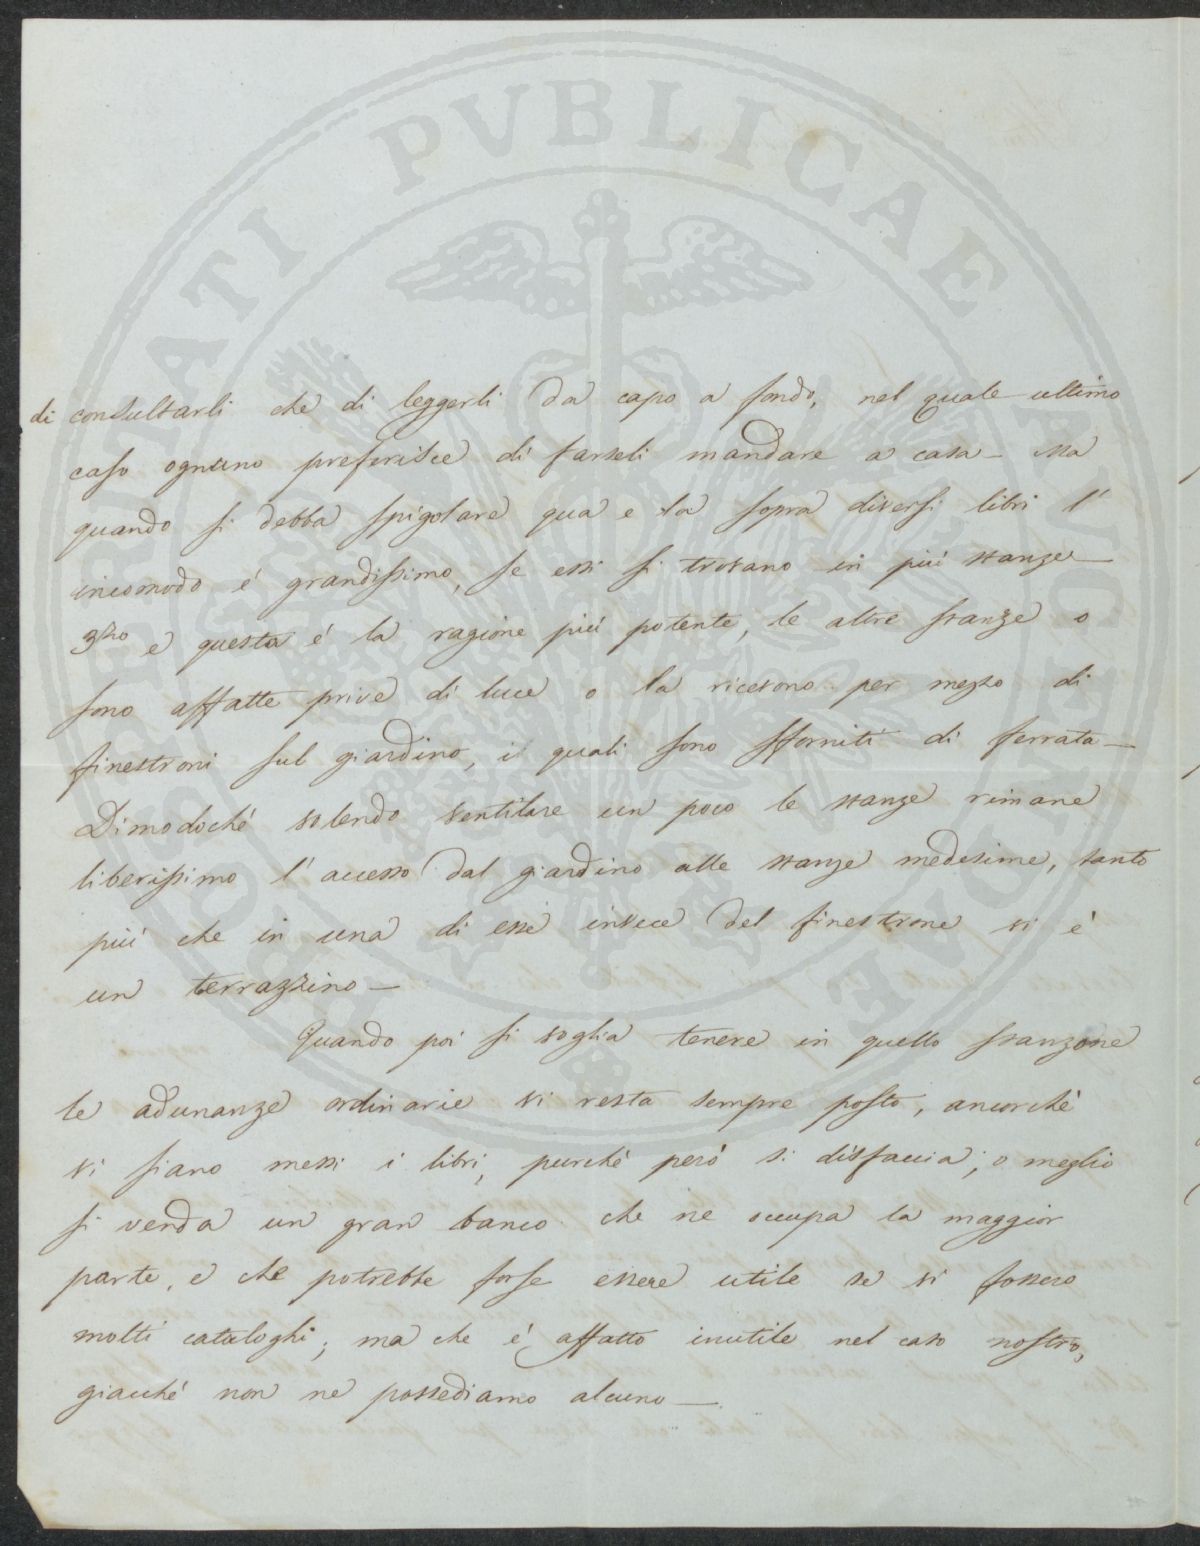 PROSPERITATI PUBLICAE AUGENDAE
di consultarli che di leggerli da capo a fondo, nel quale ultimo
caso ognuno preferisce di farseli mandare a casa — Ma
quando si debba spigolare qua e la sopra diversi libri l'
incomodo é grandissimo, se essi si trovano in piú stanze —
3zo e questa é la ragione piú potente, le altre stanze o
sono affatte prive di luce o la ricevono per mezzo di
finestroni sul giardino, i quali sono sforniti di ferrata —
Dimodoché volendo ventilare un poco le stanze rimane
liberissimo l'accesso dal giardino alle stanze medesime, tanto
piú che in una di esse invece del finestrone vi é
un terrazzino —
Quando poi si voglia tenere in quello stanzone
le adunanze ordinarie vi resta sempre posto, ancorché
vi siano messi i libri, purché peró si disfaccia, o meglio
si venda un gran banco che ne occupa la maggior
parte, e che potrebbe forse essere utile se vi fossero
molti cataloghi; ma che é affatto inutile nel caso nostro,
giacché non ne possediamo alcuno —